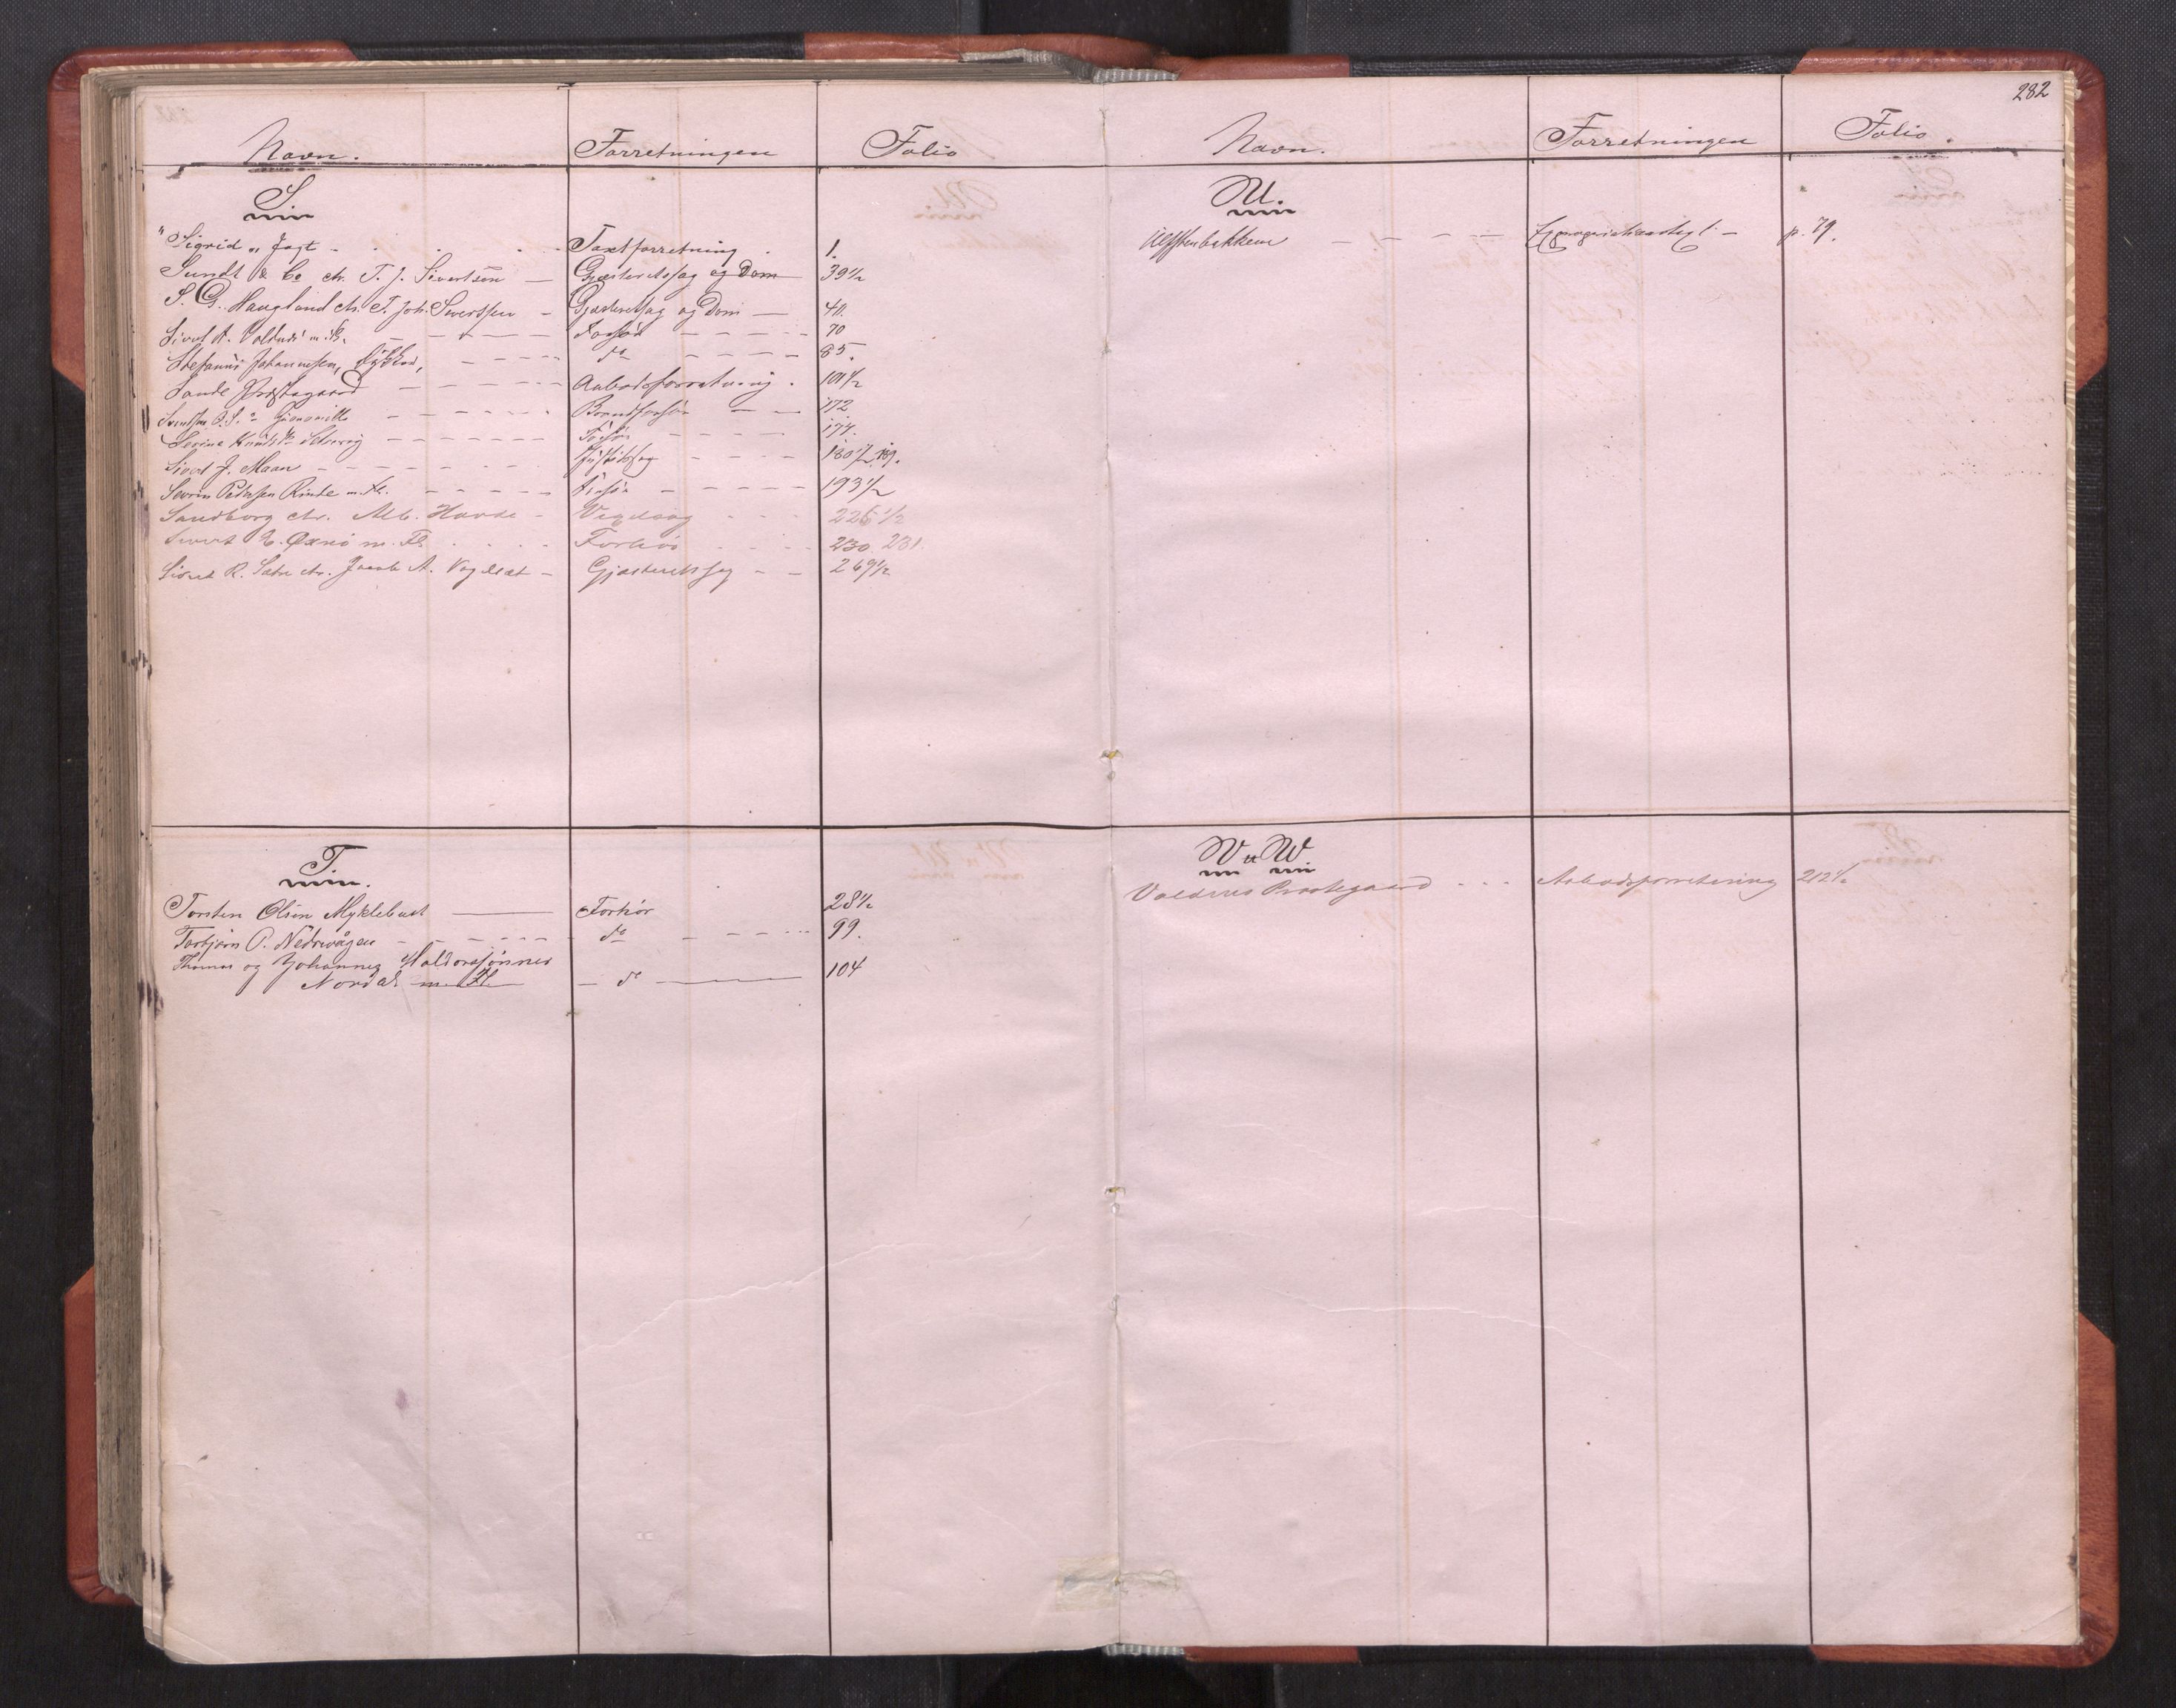 Navn. Forretningen Folio
S
"Sigrid" Jagt - Taxtforretning. 1.
Sundt & Co ctr. T. J. Sivertsen — Gjæsteretssag og Dom 39½
S. G. Haugland ctr. T. Joh. Sivertsen - Gjæsteretssag og Dom — 40.
Sivert A. m. Fl. Forhør 70
Stefanus Johannesen, do 85.
Sande Præstegaard Aabodsforretning. 101½
Brandforhør 172
Serine Knudsdr. Forhør 174.
Sivert J. Maan Justitssag 180½. 189.
Severin Pedersen Rinde m. Fl. Forhør 193½
Sandborg ctr. Alb. Havde - Vexelsag 226½
Sivert E. Øxnø m. Fl. Forhør 230. 231.
Sivert R. Sætre ctr. Jacob A. Vogelsæt - Gjæsteretssag 269½
T.
Torsten Olsen Myklebust Forhør 28½
Torbjørn P. Nedrevågen do 99.
Thomas og Johannes Haldorsønner
Nordal m. Fl. do 104
282
Navn. Forretningen Folio.
U.
Ulfstenbakken p. 79.
V u W.
Voldens Præstegaard Aabodsforretning 212½